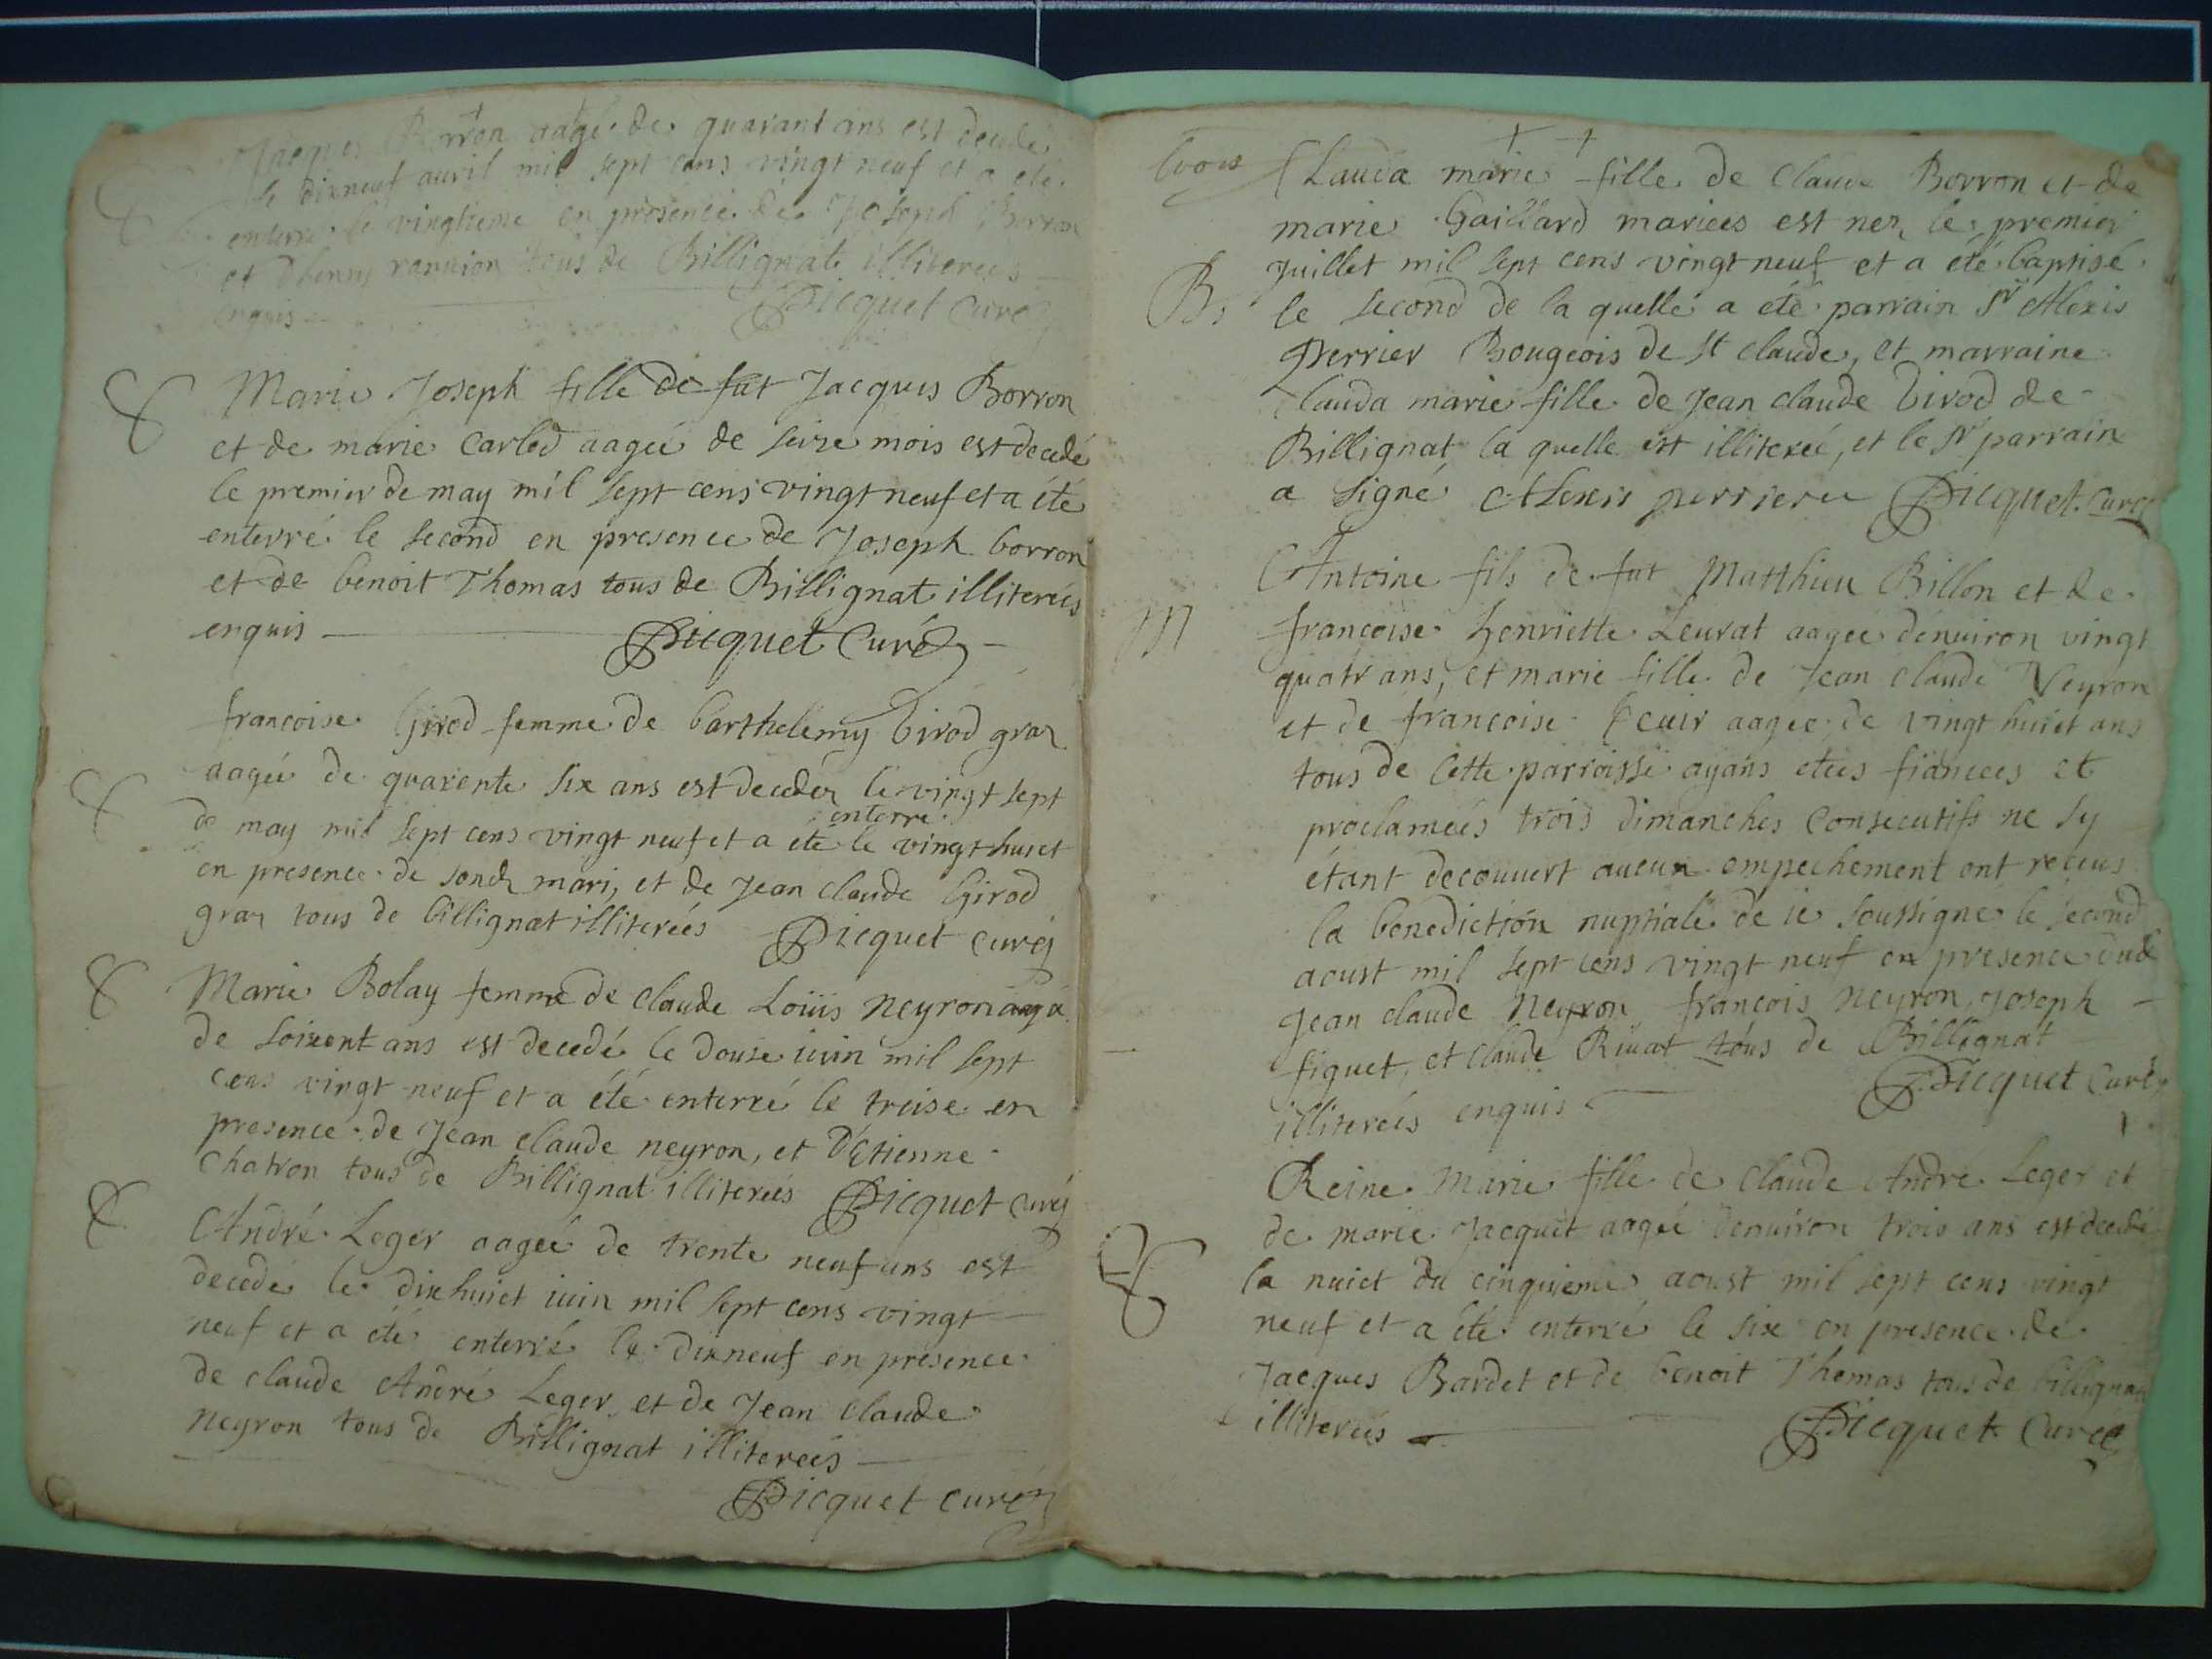 Jacques Borron aagé de quarant ans est decedé
le dixneuf auril mil sept cens vingt neuf et a été
enterré le vingtieme en presence de Joseph Borron
et tous de Billignat illitereés
enquis Picquet Curé
Marie Joseph fille de fut Jacques Borron
et de marie Carlod aageé de seize mois est decedé
le premier de may mil sept cens vingt neuf et a été
enterré le second en presence de Joseph borron
et de benoit Thomas tous de Billignat illitereés
enquis Picquet Curé
francoise Girod femme de barthelemy Girod graz
aageé de quarente six ans est decedez le vingt sept
de may mil sept cens vingt neuf et a été enterré le vingt huict
en presence de sondt mari, et de Jean claude Girod
graz tous de billignat illitereés Picquet curé
Marie Bolay femme de claude Loüis neyron aagé
de soixent ans est decedé le douse iuin mil sept
cens vingt neuf et a été enterré le treise en
presence de Jean claude neyron, et d'Etienne
Chatron tous de Billignat illitereés Picquet curé
André Leger aageé de trente neuf ans est
decedé le dixhuict iuin mil sept cens vingt
neuf et a été enterré le dixneuf en presence
de claude André Leger et de Jean claude
neyron tous de Billignat illitereés
Picquet curé
Clauda marie fille de Claude Borron et de
marie Gaillard marieés est nez le premier
Juillet mil sept cens vingt neuf et a été baptisé
B. le second de la quelle a été parrain Sr Alexis
Perrier Bougeois de St claude, et marraine
Clauda marie fille de Jean claude Girod de
Billignat la quelle est illitereé, et le Sr parrain
a signé Alexis perrier Picquet Curé
Antoine fils de fut Matthieu Billon et de
m francoise henriette Leurat aagee d'enuiron vingt
quatr ans, et marie fille de Jean claude Neyron
et de francoise aageé de vingt huict ans
tous de cette parroisse ayans eteés fianceés et
proclameés trois dimanches consecutifs ne sy
étant decouuert aucun empechement ont receus
la benediction nuptiale de ie soussigné le second
aoust mil sept cens vingt neuf en presence dudt
Jean claude Neyron francois neyron, Joseph
figuet, et claude Riuat tous de Billignat
illitereés enquis Picquet Curé
Reine Marie fille de claude André Leger et
de marie Jacquet aageé denuiron trois ans est decedé
la nuict du cinquieme aoust mil sept cens vingt
neuf et a été enterré le six en presence de
Jacques Bardet et de benoit Thomas tous de billignat
illitereés Picquet Curé